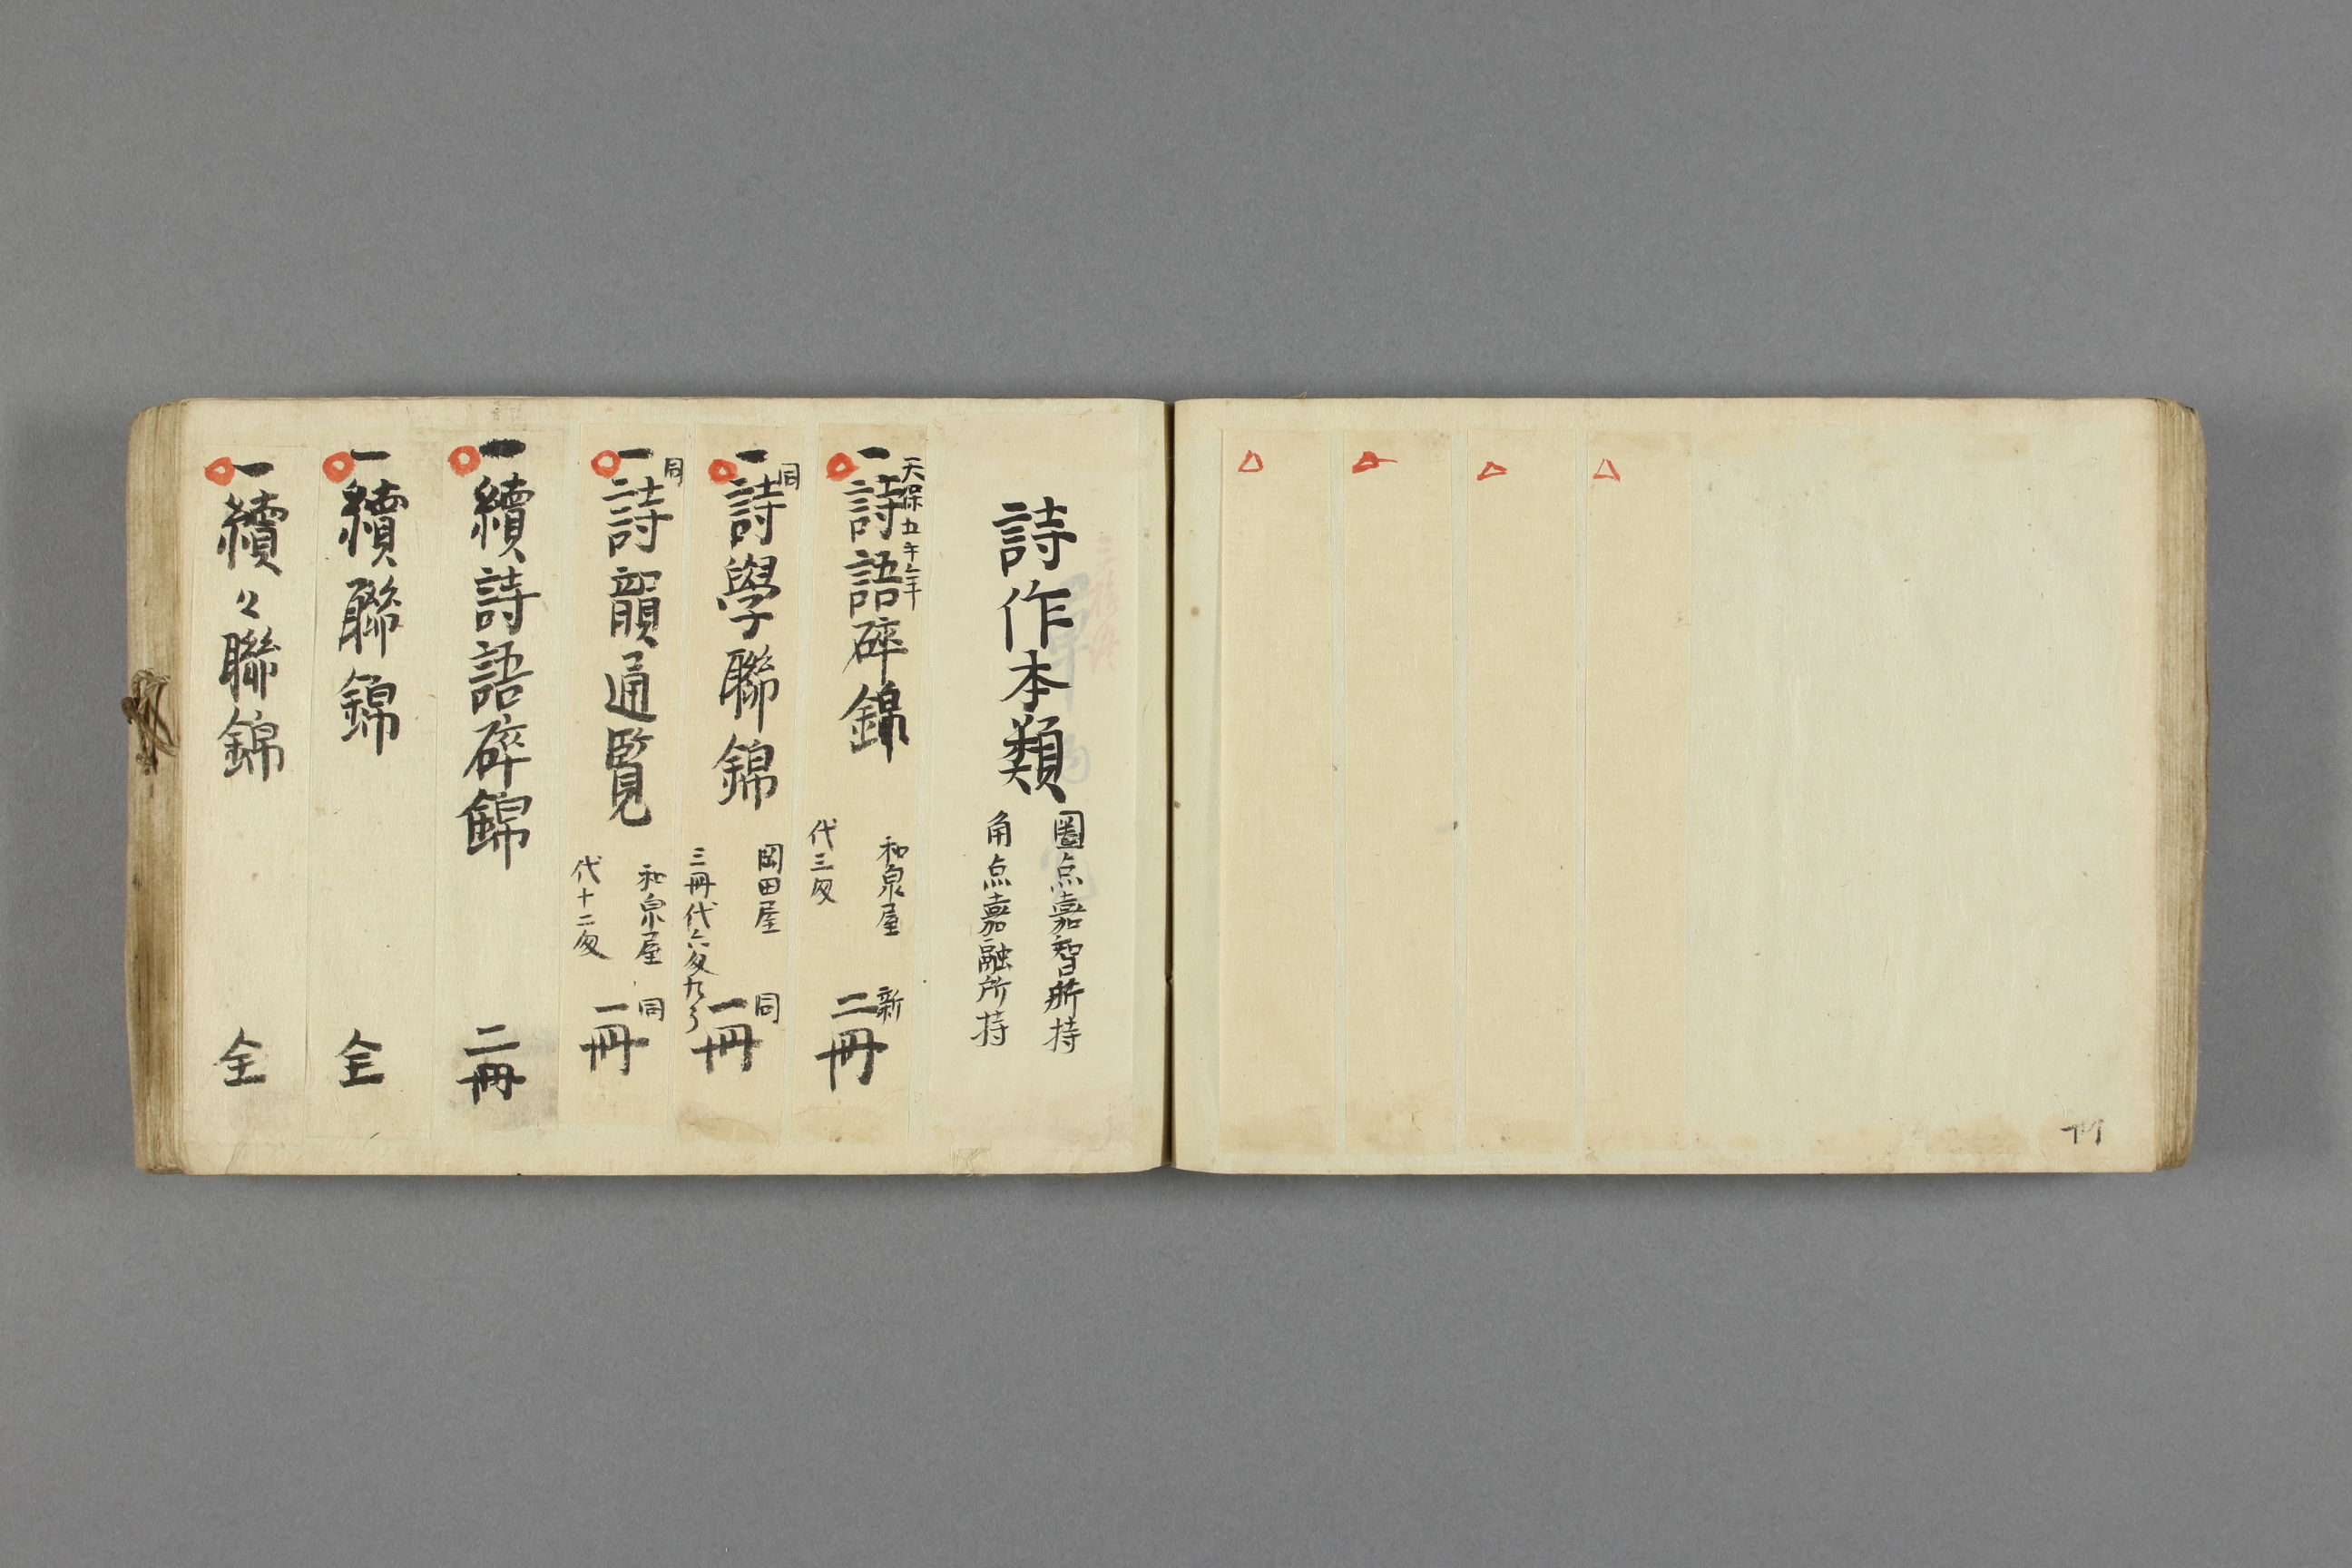 詩作本類
圏点嘉智所持
角点嘉融所持
天保五午年
一詩語碎錦
和泉屋
代三匁
新
二冊
同
一詩學聯錦
岡田屋
三冊代六匁九分
同
一冊
同
一詩韻通覧
和泉屋
代十二匁
同
一冊
一續詩語碎錦
二冊
一續聯錦
全
一續々聯錦
全